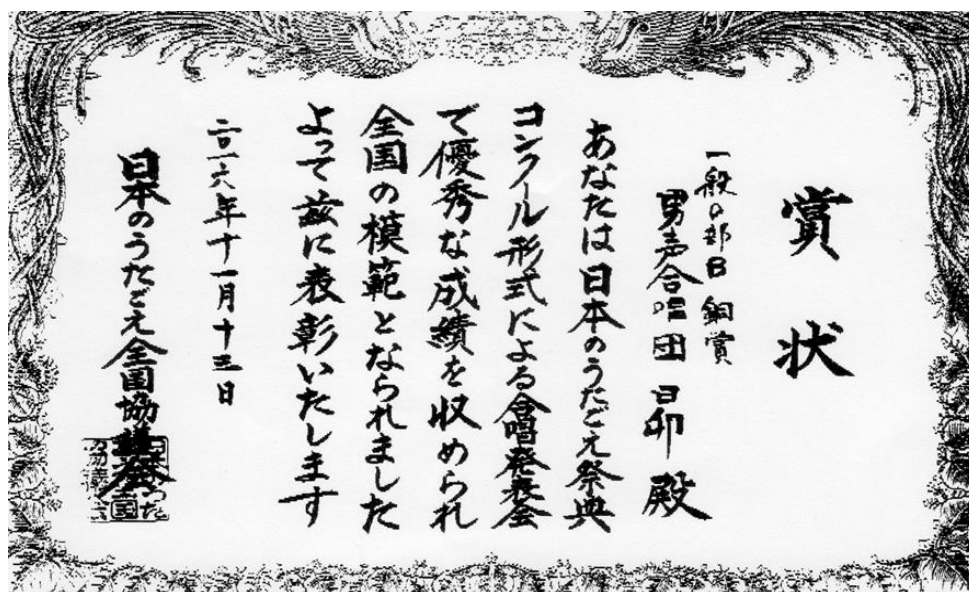 賞状
一般の部B 銅賞
男声合唱団 昴 殿
あなたは日本のうたごえ祭典
コンクール形式による合唱発表会
で優秀な成績を収められ
全国の模範となられました
よって茲に表彰いたします
二〇一六年十一月十三日
日本のうたごえ全国協議会